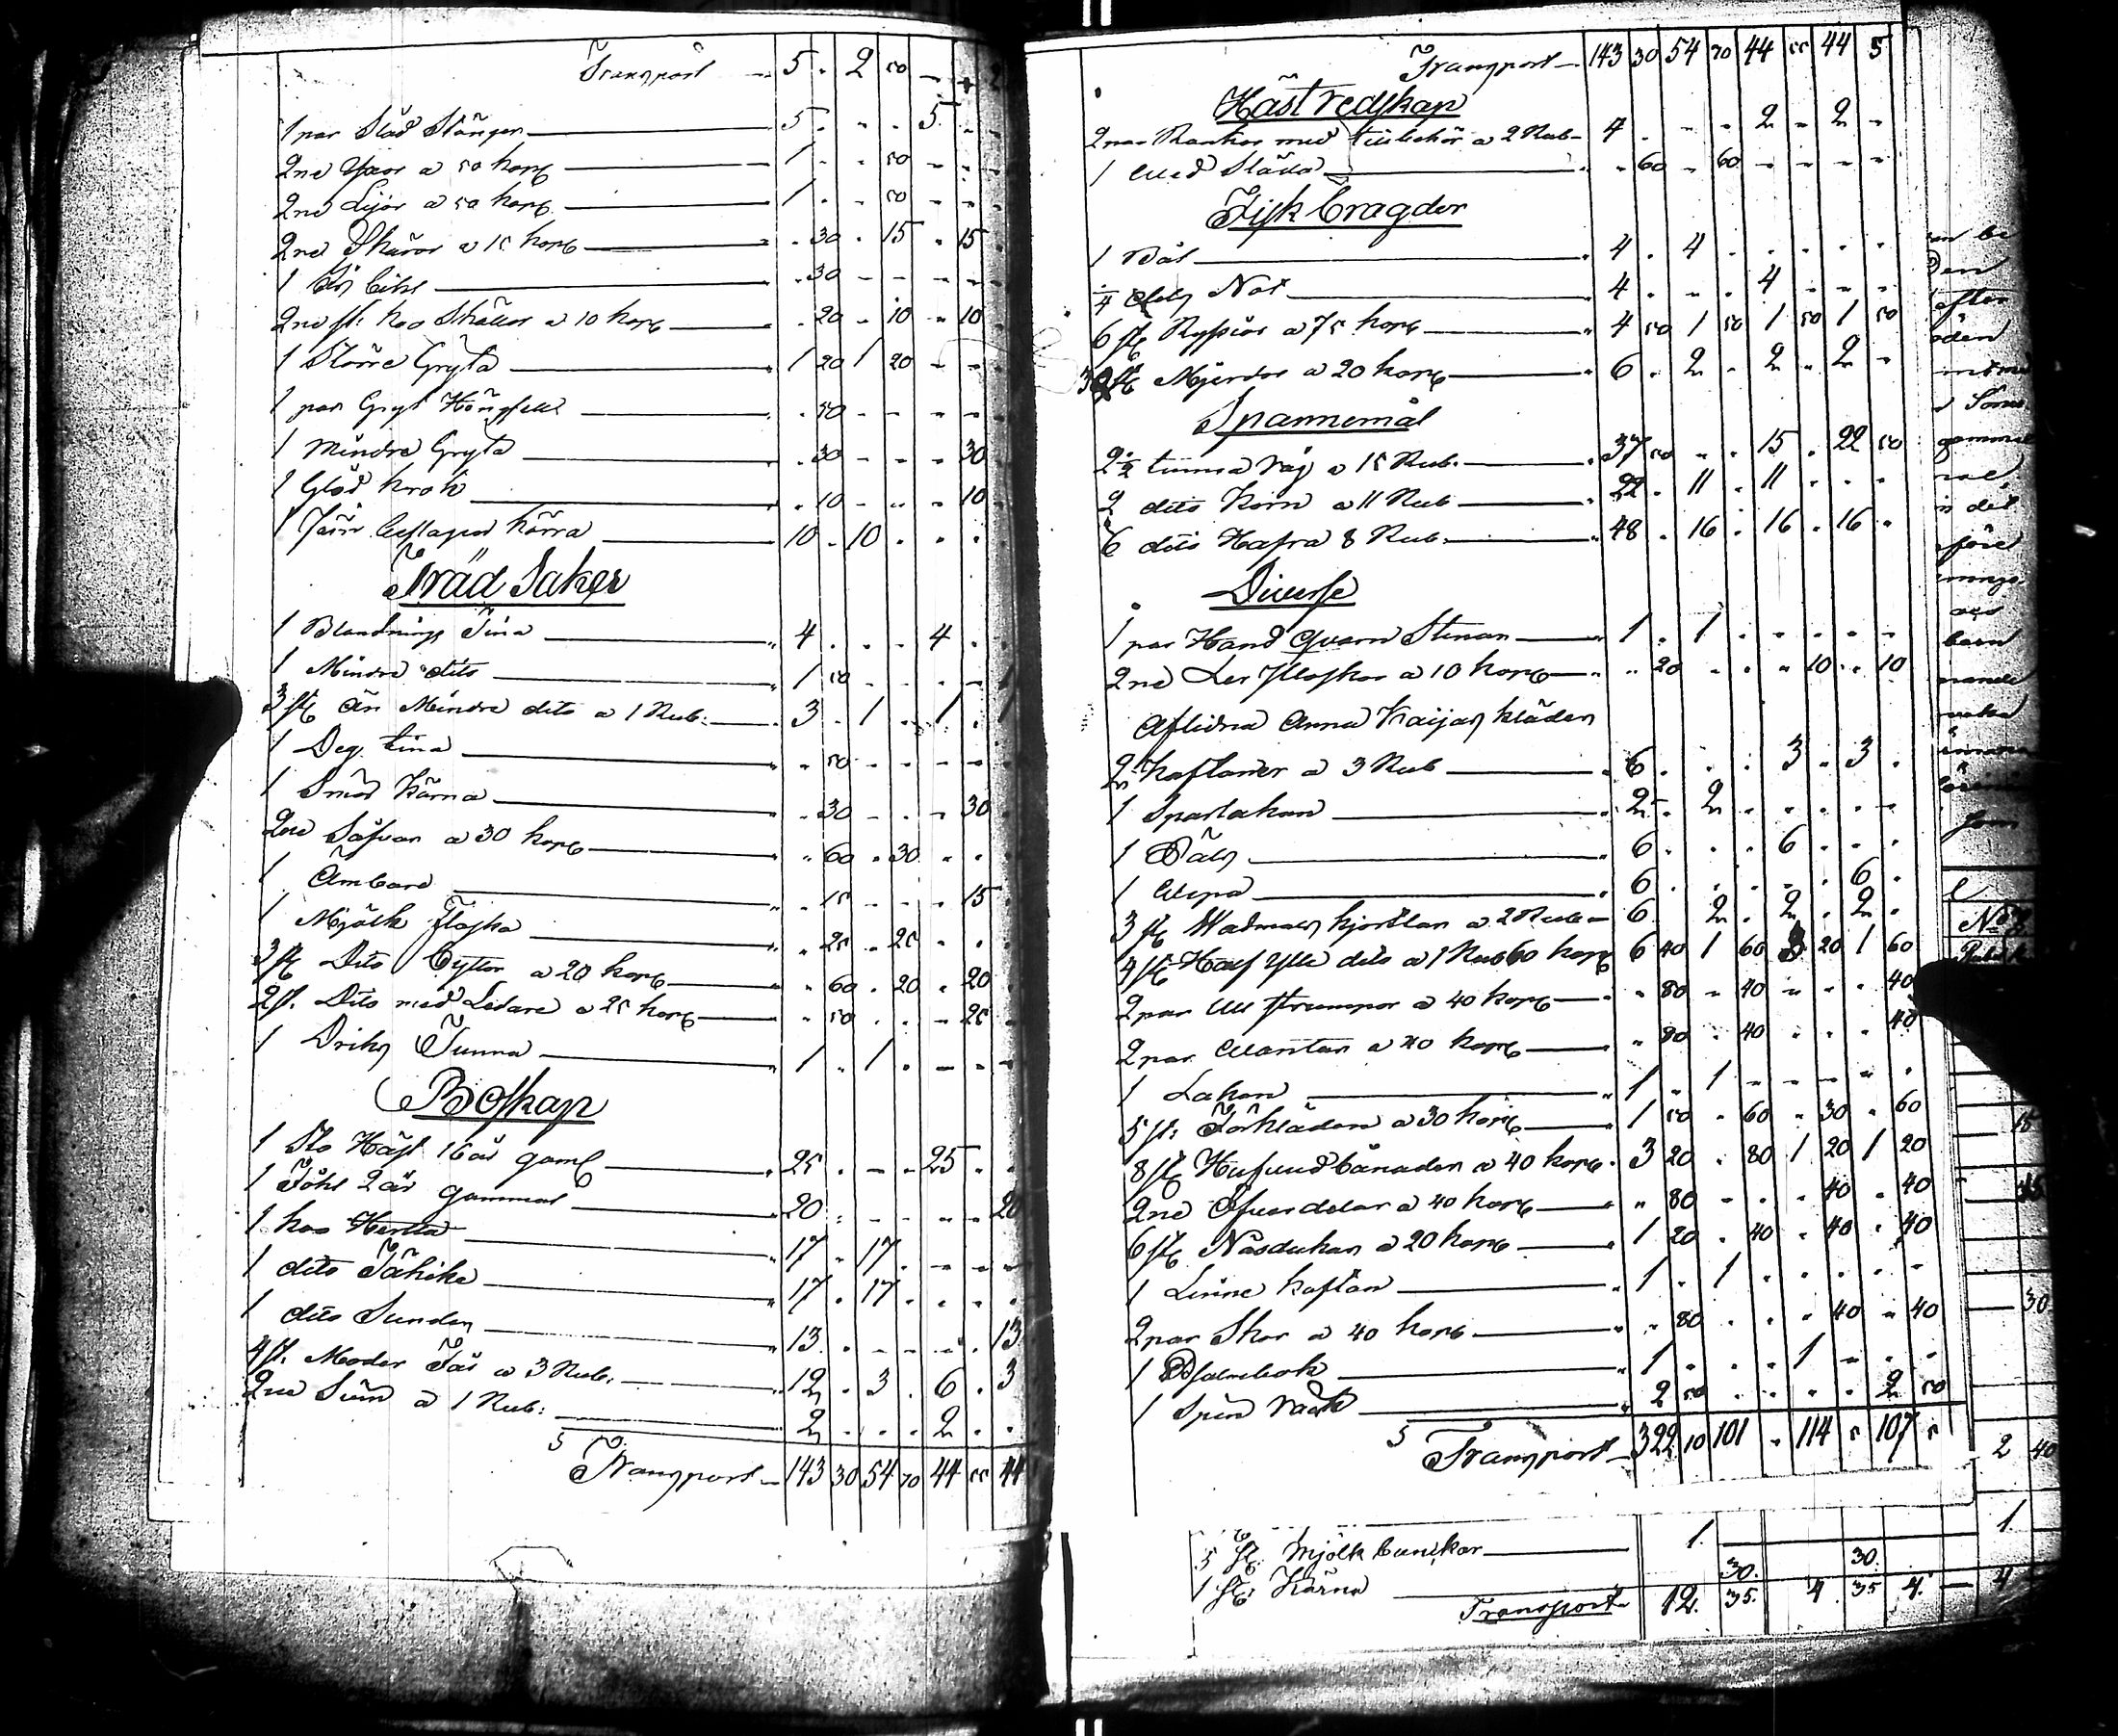 Transport 5 . 2 50
1 par Släd Stänger 5 . - - - 5 - -
2ne Yxor a 50 kop 1 - - 50 - -
2ne Lijor a 50 kop 1 - - 50 - -
2ne Skäror a 15 kop . 30 . 15 . 15
1 30 - - - -
2ne st: koo Skällor a 10 kop . 20 - 10 - 10
1 Större Gryta 1 20 1 20 - -
1 par Gryt . 50 - - - -
1 Mindre Gryta . 30 - - - 30
1 Glöd krok . 10 - - - 10
1 Järn beslagen kärra 10 . 10 . . .
Träd Saker
1 Blandnings Tina 4 . . . 4 .
1 Mindre dito 1 50 - - - - 1
3 st än Mindre dito a 1 Rub: 3 . 1 . 1 . 1
1 Deg tina . 50 - - - -
1 Smör Kärna . 30 - - - 30
2ne Såfvar a 30 kop . 60 . 30 . .
1 Ämbare . 15 - - - 15
1 Mjölk Flaska . 25 . 25 . .
3 st Dito Byttor a 20 kop . 60 . 20 . 20
2 st. Dito med Ledare a 25 kop . 50 . . - 25
1 Driks Tunna 1 . 1 . - -
Boskap
1 Sto Häst 16 år gaml 25 . - - 25 .
1 Föhl 2 år gammal 20 : - - - - 20
1 koo 17 . 17 . - - -
1 dito 17 . 17 . . . .
1 dito Sunden 13 . - - - . 13
4 st. Moder Får a 3 Rub. 12 . 3 . 6 . 3
2ne a 1 Rub: 2 . . . 2 . .
Transport 143 30 54 70 44 55 44
Transport 143 30 54 70 44 55 44 5
Häst redskap
2 par med tillbehör a 2 Rub 4 . - - 2 - 2 -
1 Släda . 60 - 60 - - - -
Fisk Bragder
1 Båt 4 . 4 . . . . .
¼ Not 4 . - . 4 . . .
6 st Ryssior a 75 kop 4 50 1 50 1 50 1 50
30 st Mjerdor a 20 kop 6 . 2 . 2 . 2 -
Spannemål
2½ tunna råg a 15 Rub. 37 50 . . 15 . 22 50
2 dito Korn a 11 Rub 22 . 11 . 11 . . .
6 dito Hafra 8 Rub. 48 . 16 . 16 . 16 .
Diverse
1 par Hand qvarn Stenar 1 . 1 . . . . -
2ne Ler flaskor a 10 kop . 20 . . . 10 . 10
Aflidna Anna Kaijas kläder
2 kaftaner a 3 Rub 6 . . . 3 . 3 .
1 Sparlakan 2 - 2 . . . . -
1 Päls 6 . . . 6 . . .
1 6 . . . . . 6 .
3 st Wadmals kjortlar a 2 Rub 6 2 . 2 . 2 .
4 st Half Ylle dito a 1 Rub 60 kop 6 40 1 60 3 20 1 60
2 par Ull strumpor a 40 kop . 80 - 40 - . . 40
2 par Wantar a 40 kop . 80 . 40 . . . 40
1 Lakan 1 . 1 - - - - .
5 st: Förkläden a 30 kop 1 50 . 60 . 30 . 60
8 st Hufvudbånader a 40 kop. 3 20 . 80 1 20 1 20
2ne Öfverdelar a 40 kop . 80 - . . 40 . 40
6 st Näsdukar a 20 kop 1 20 . 40 . 40 . 40
1 Linne kaftan 1 . 1 . . . . -
2 par Skor a 40 kop . 80 . . . 40 . 40
1 Psalmbok 1 . . . 1 - . .
1 Spin råck 2 50 . . . . 2 50
Transport 322 10 101 . 114 5 107 5
5 st Mjölk bunkar 1.
1 st: Kärna 30. 30.
Transport 12. 35. 4 35 4.